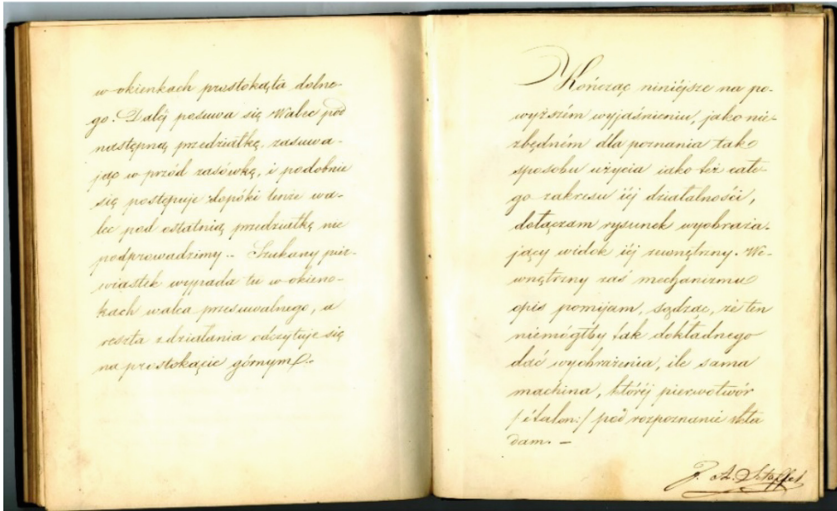 w okienkach prostokąta dolne-
go. Daléj posuwa się Walec pod
następną przedziałkę, zasuwa-
jąc w przód zasówkę, i podobnie
się postępuje dopóki tenże wa-
lec pod ostatnią przedziałkę nie
podprowadzimy.. Szukany pier-
wiastek wypada tu w okien-
kach walca przesuwalnego, a
reszta z działania odczytuje się
na prostokącie górnym.
Kończąc niniéjsze na po-
wyższém wyjaśnieniu, jako nie-
zbędném dla poznania tak
sposobu użycia iako też całe-
go zakresu iéj działalności,
dołączam rysunek wyobraża-
jący widok iéj zewnętrzny. We-
wnętrzny zaś mechanizmu
opis pomijam, sądząc, że ten
niemógłby tak dokładnego
dać wyobrażenia, ile sama
machina, któréj pierwotwór
/:étalon:/ pod rozpoznanie skła
dam. –
J. A. Staffel